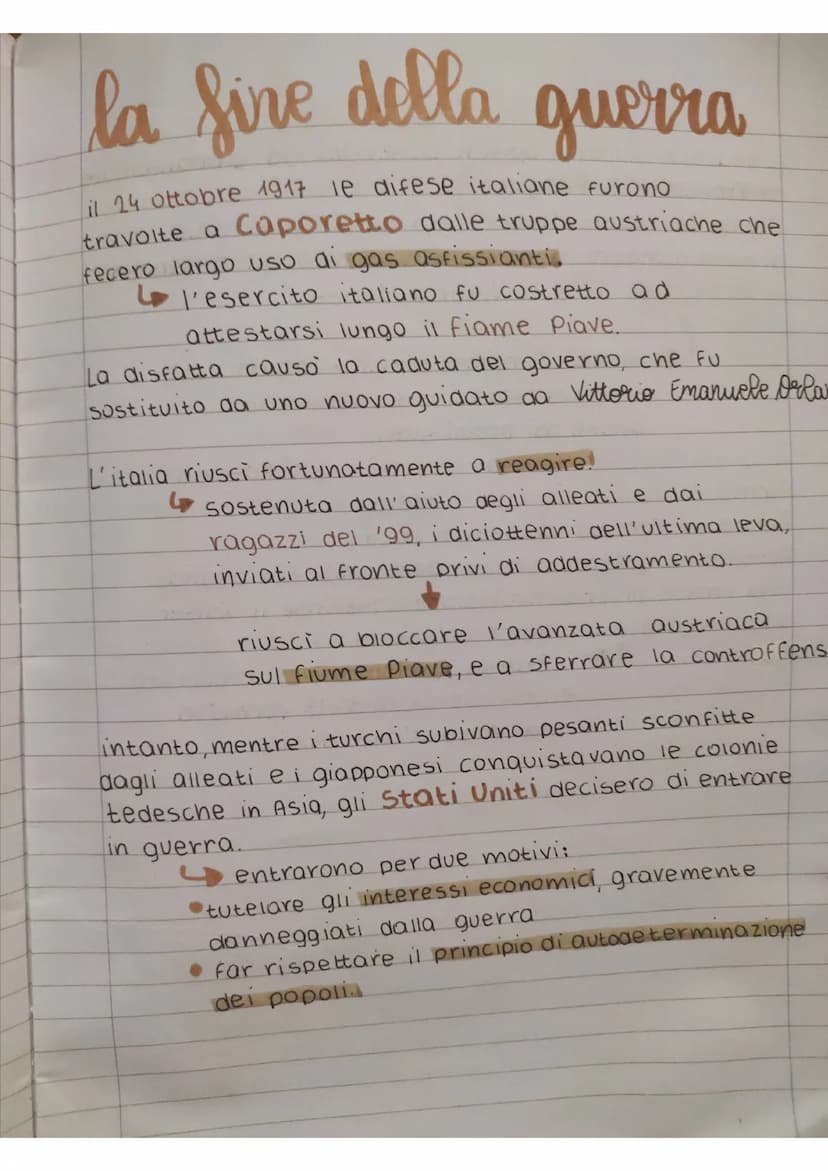 la fine della guerra
il 24 ottobre 1917 le difese italiane furono
travolte a Caporetto dalle truppe austriache che
fecero largo uso di gas asfissianti.
l'esercito italiano fu costretto ad
attestarsi lungo il fiame Piave.
La disfatta causò la caduta del governo, che fu
sostituito da uno nuovo guidato da Vittorio Emanuele
L'italia riuscì fortunatamente a reagire!
sostenuta dall'aiuto degli alleati e dai
ragazzi del '99, i diciottenni dell'ultima leva,
inviati al fronte privi di addestramento.
riuscì a bloccare l'avanzata austriaca
sul fiume Piave, e a sferrare la controffens
intanto, mentre i turchi subivano pesanti sconfitte
dagli alleati e i giapponesi conquistavano le colonie
tedesche in Asia, gli Stati Uniti decisero di entrare
in guerra.
entrarono per due motivi:
•tutelare gli interessi economici, gravemente
danneggiati dalla guerra
• far rispettare il principio di autodeterminazione
dei popoli.